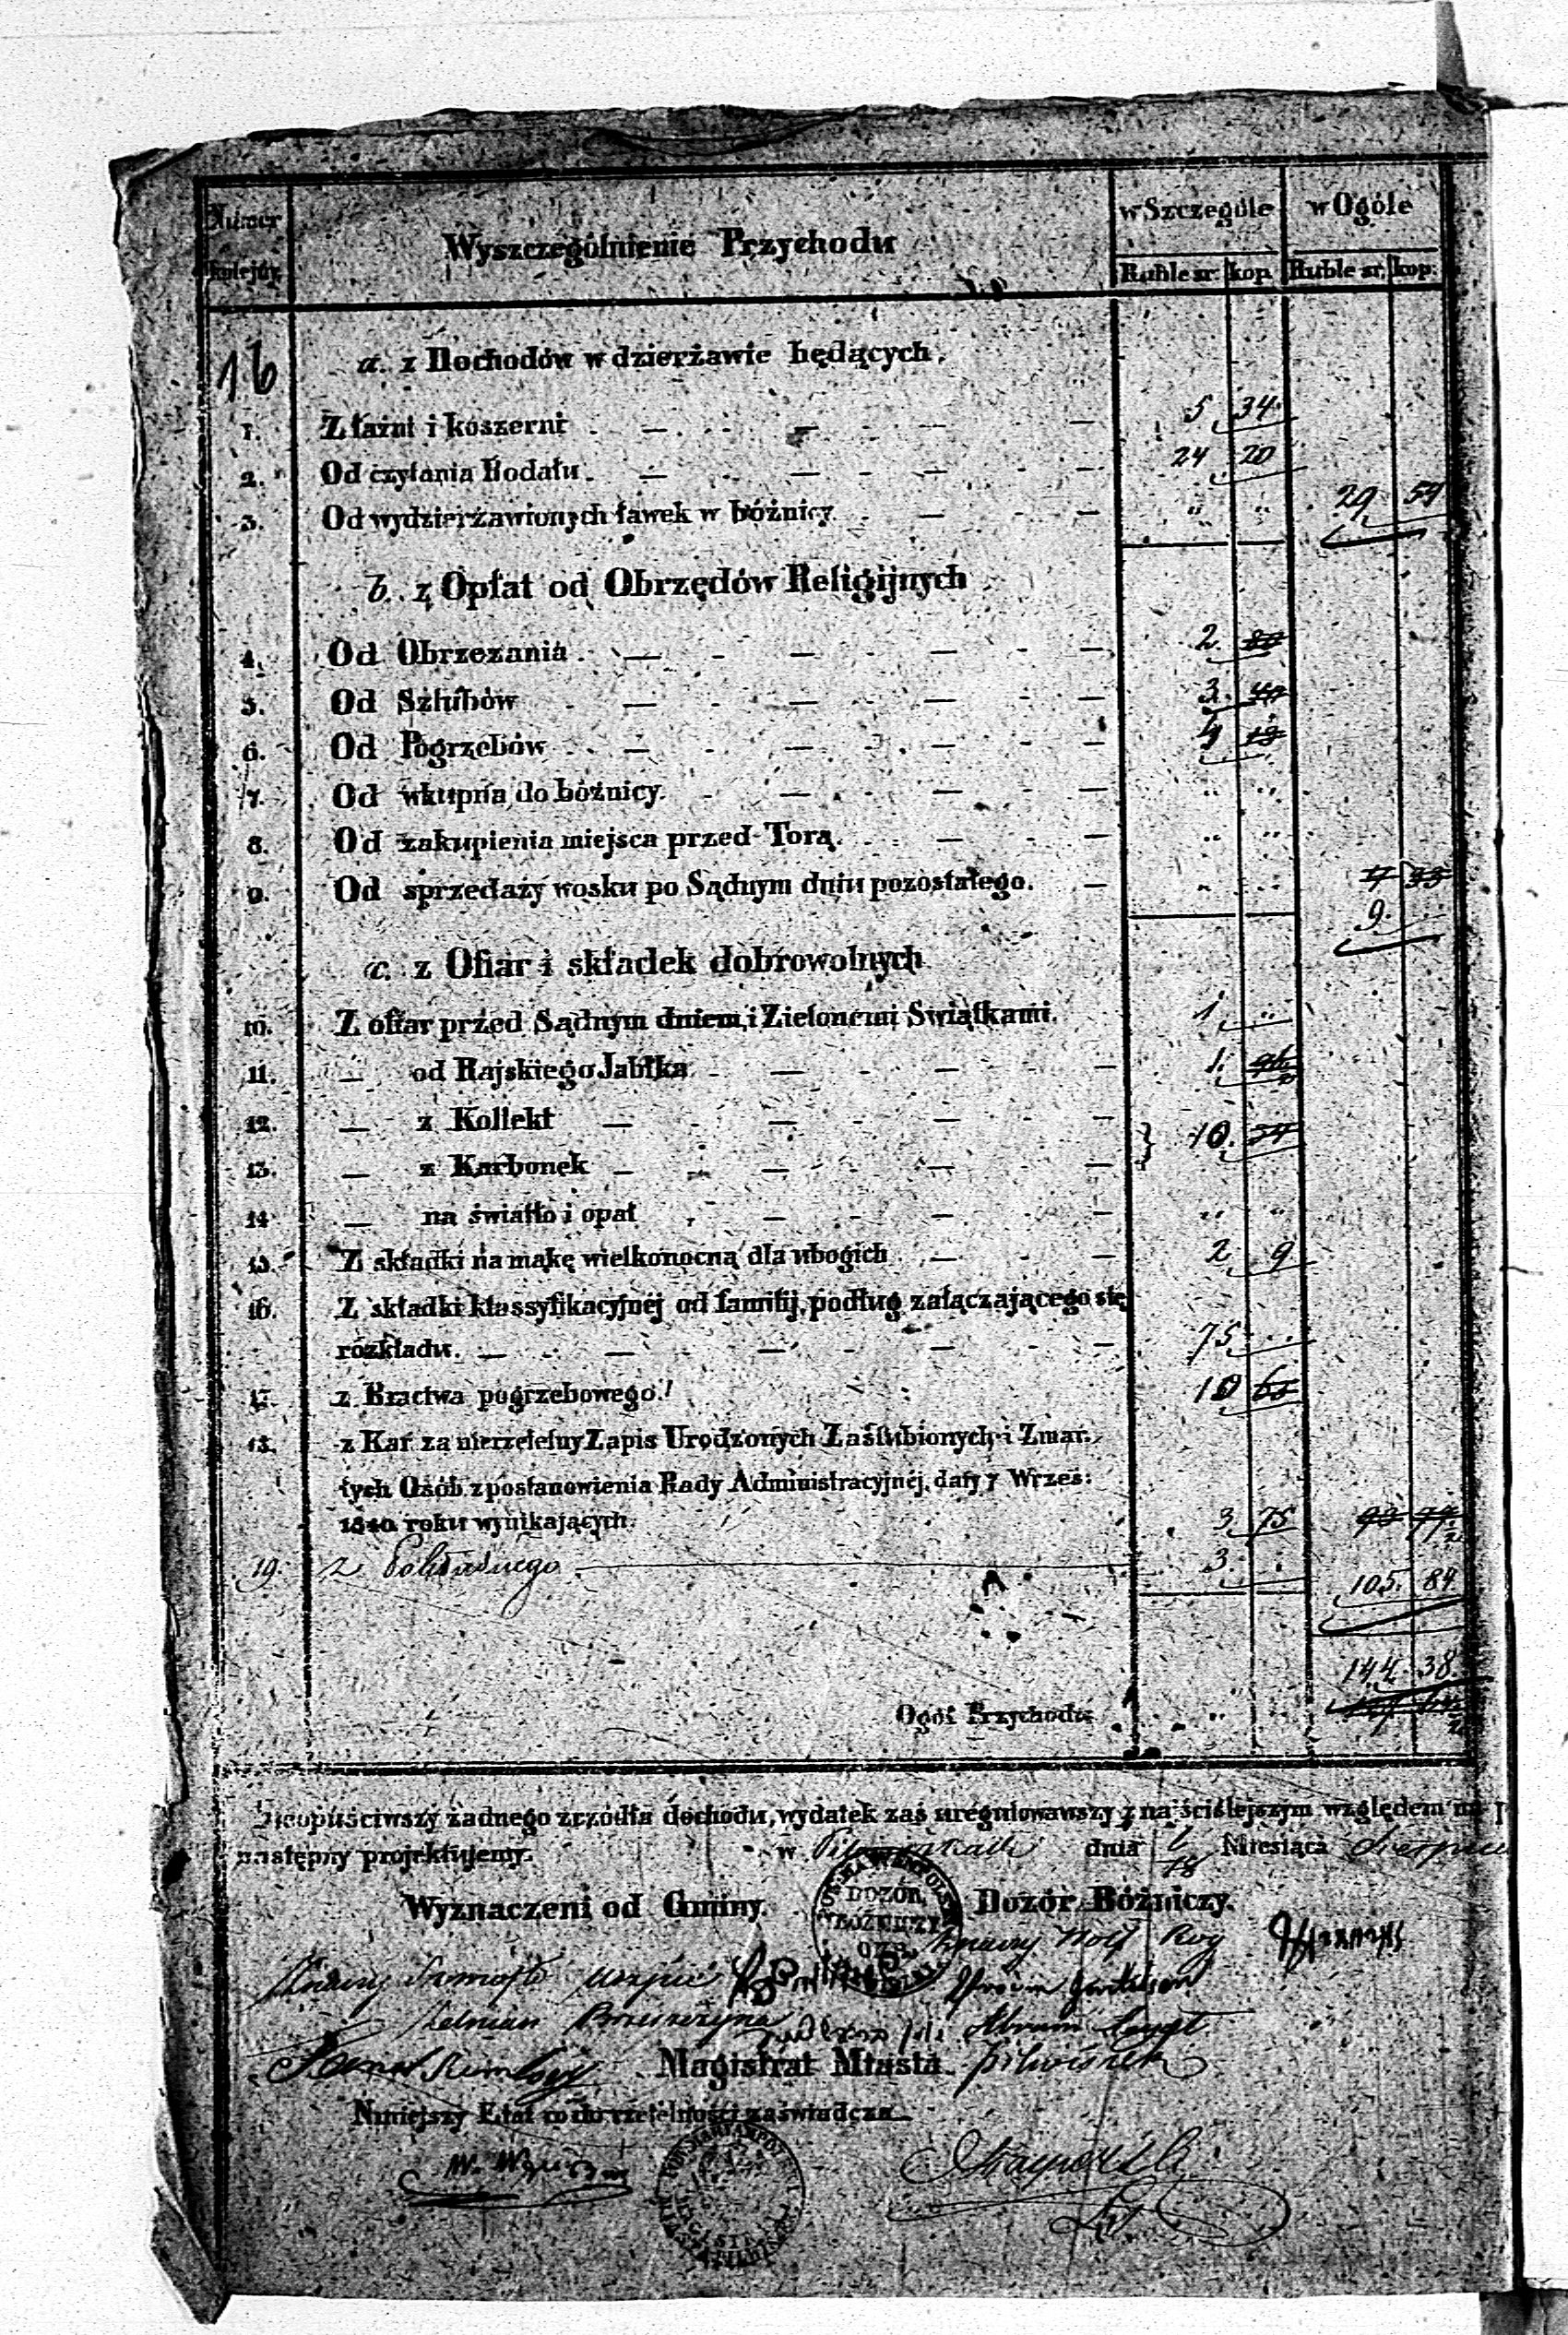 Numer kolejny Wyszczególnienie Przychodu w Szczególe w Ogóle
Ruble sr. kop. Ruble sr. kop.
16 a. z Dochodów w dzierżawie będących.
1. Z łaźni i koszerni 5 34
2. Od czytania Rodału 24 20
3. Od wydzierżawionych ławek w bóżnicy 29 54
b. z Opłat od Obrzędów Religijnych
4. Od Obrzezania 2 80
5. Od Szlubów 3 40
6. Od Pogrzebów 4 13
7. Od wkupna do bóżnicy.
8. Od zakupienia miejsca przed Torą.
9. Od sprzedaży wosku po Sądnym dniu pozostałego.
9.
c. z Ofiar i składek dobrowolnych
10. Z ofiar przed Sądnym dniem i Zielonemi Swiątkami. 1
11. — od Rajskiego Jabłka 1.
12. — z Kollekt
13. — z Karbonek } 10. 54
14 — na światło i opał
15. Z składki na mąkę wielkonocną dla ubogich 2 9
16. Z składki klassyfikacyjnéj od familij, podług załączającego się
rozkładu. 75
17. z Bractwa pogrzebowego. 10 65
18. z Kar za nierzetelny Zapis Urodzonych Zaślubionych i Zmar-
łych Osób z postanowienia Rady Administracyjnéj, daty 7 Wrześ:
1840 roku wynikających. 3 75
19. z 3
105. 84
144. 38.
Ogół Przychodu
Nieopuściwszy żadnego zrzódła dochodu, wydatek zaś uregulowawszy z najściślejszym względem na
następny projektujemy. w dnia 6/18 Miesiąca Sierpnia
Wyznaczeni od Gminy. Dozór Bóżniczy.
DOZÓR
BÓŻNICZY
Wolf
Abram
Magistrat Miasta Pilwiszek
Niniejszy Etat co do rzetelności zaświadcza